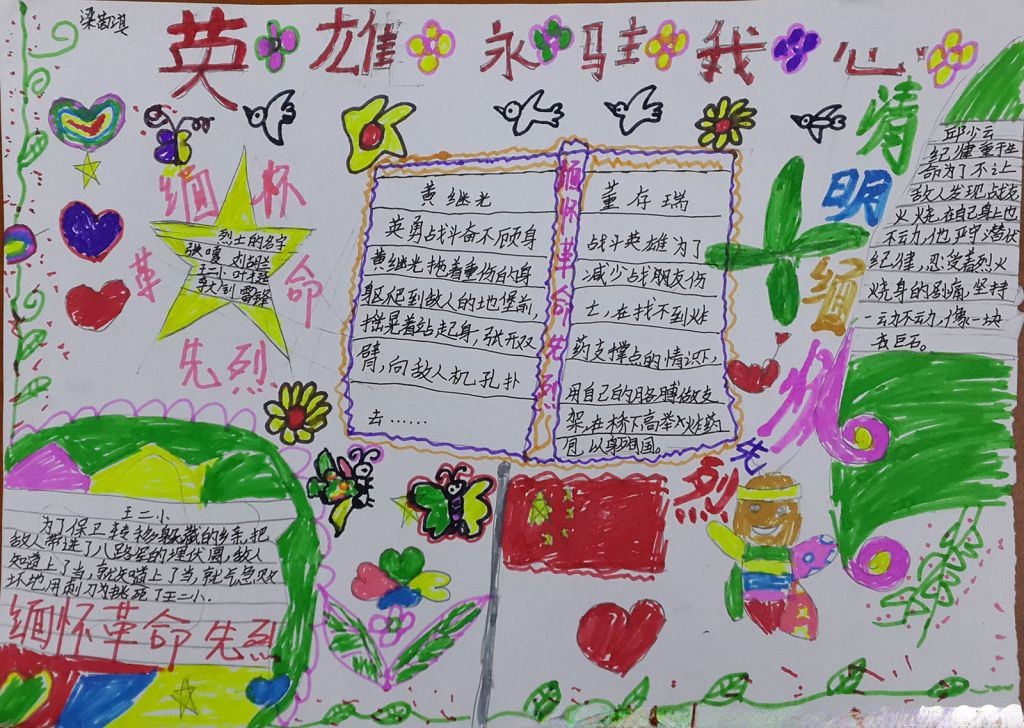 英雄永驻我心
缅怀
革命
先烈
烈士的名字
王二小
黄继光
英勇战斗奋不顾身
黄继光拖着重伤的身
躯爬到敌人的地堡前,
摇晃着站起身,张开双
臂,向敌人机孔扑
去……
缅怀革命先烈
董存瑞
战斗英雄为了
减少战朋友伤
亡,在找不到炸
药支撑点的情识下,
用自己的胳膊做支
架,在桥下高举炸药
包,以身殉国。
清明缅怀先烈
邱少云
纪律重于生
命为了不让
敌人发现战友
火烧在自己身上也
不动,他严守潜伏
纪律,忍受着烈火
烧身的剧痛,坚持
一动不动,像一块
巨石。
王二小
为了保卫转移躲藏的乡亲,把
敌人带进了八路军的埋伏圈,敌人
知道上了当,就知道上了当,就气急败
坏地用刺刀挑死了王二小.
缅怀革命先烈